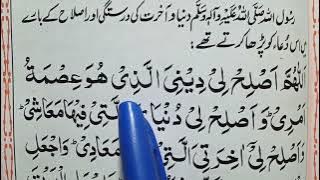 رسول اللہ صَلَّی اللہُ عَلَیْہِ وَآلِہٖ وَسَلَّم دنیا و آخرت کی درستگی اور اصلاح کے بارے
اس دُعاء کو پڑھا کرتے تھے:
اَللّٰهُمَّ اَصْلِحْ لِیْ دِیْنِیَ الَّذِیْ هُوَ عِصْمَةُ
اَمْرِیْ وَ اَصْلِحْ لِیْ دُنْیَا الَّتِیْ فِیْهَا مَعَاشِیْ
وَاَصْلِحْ لِیْ اٰخِرَتِی الَّتِیْ مَعَادِیْ وَاجْعَلِ